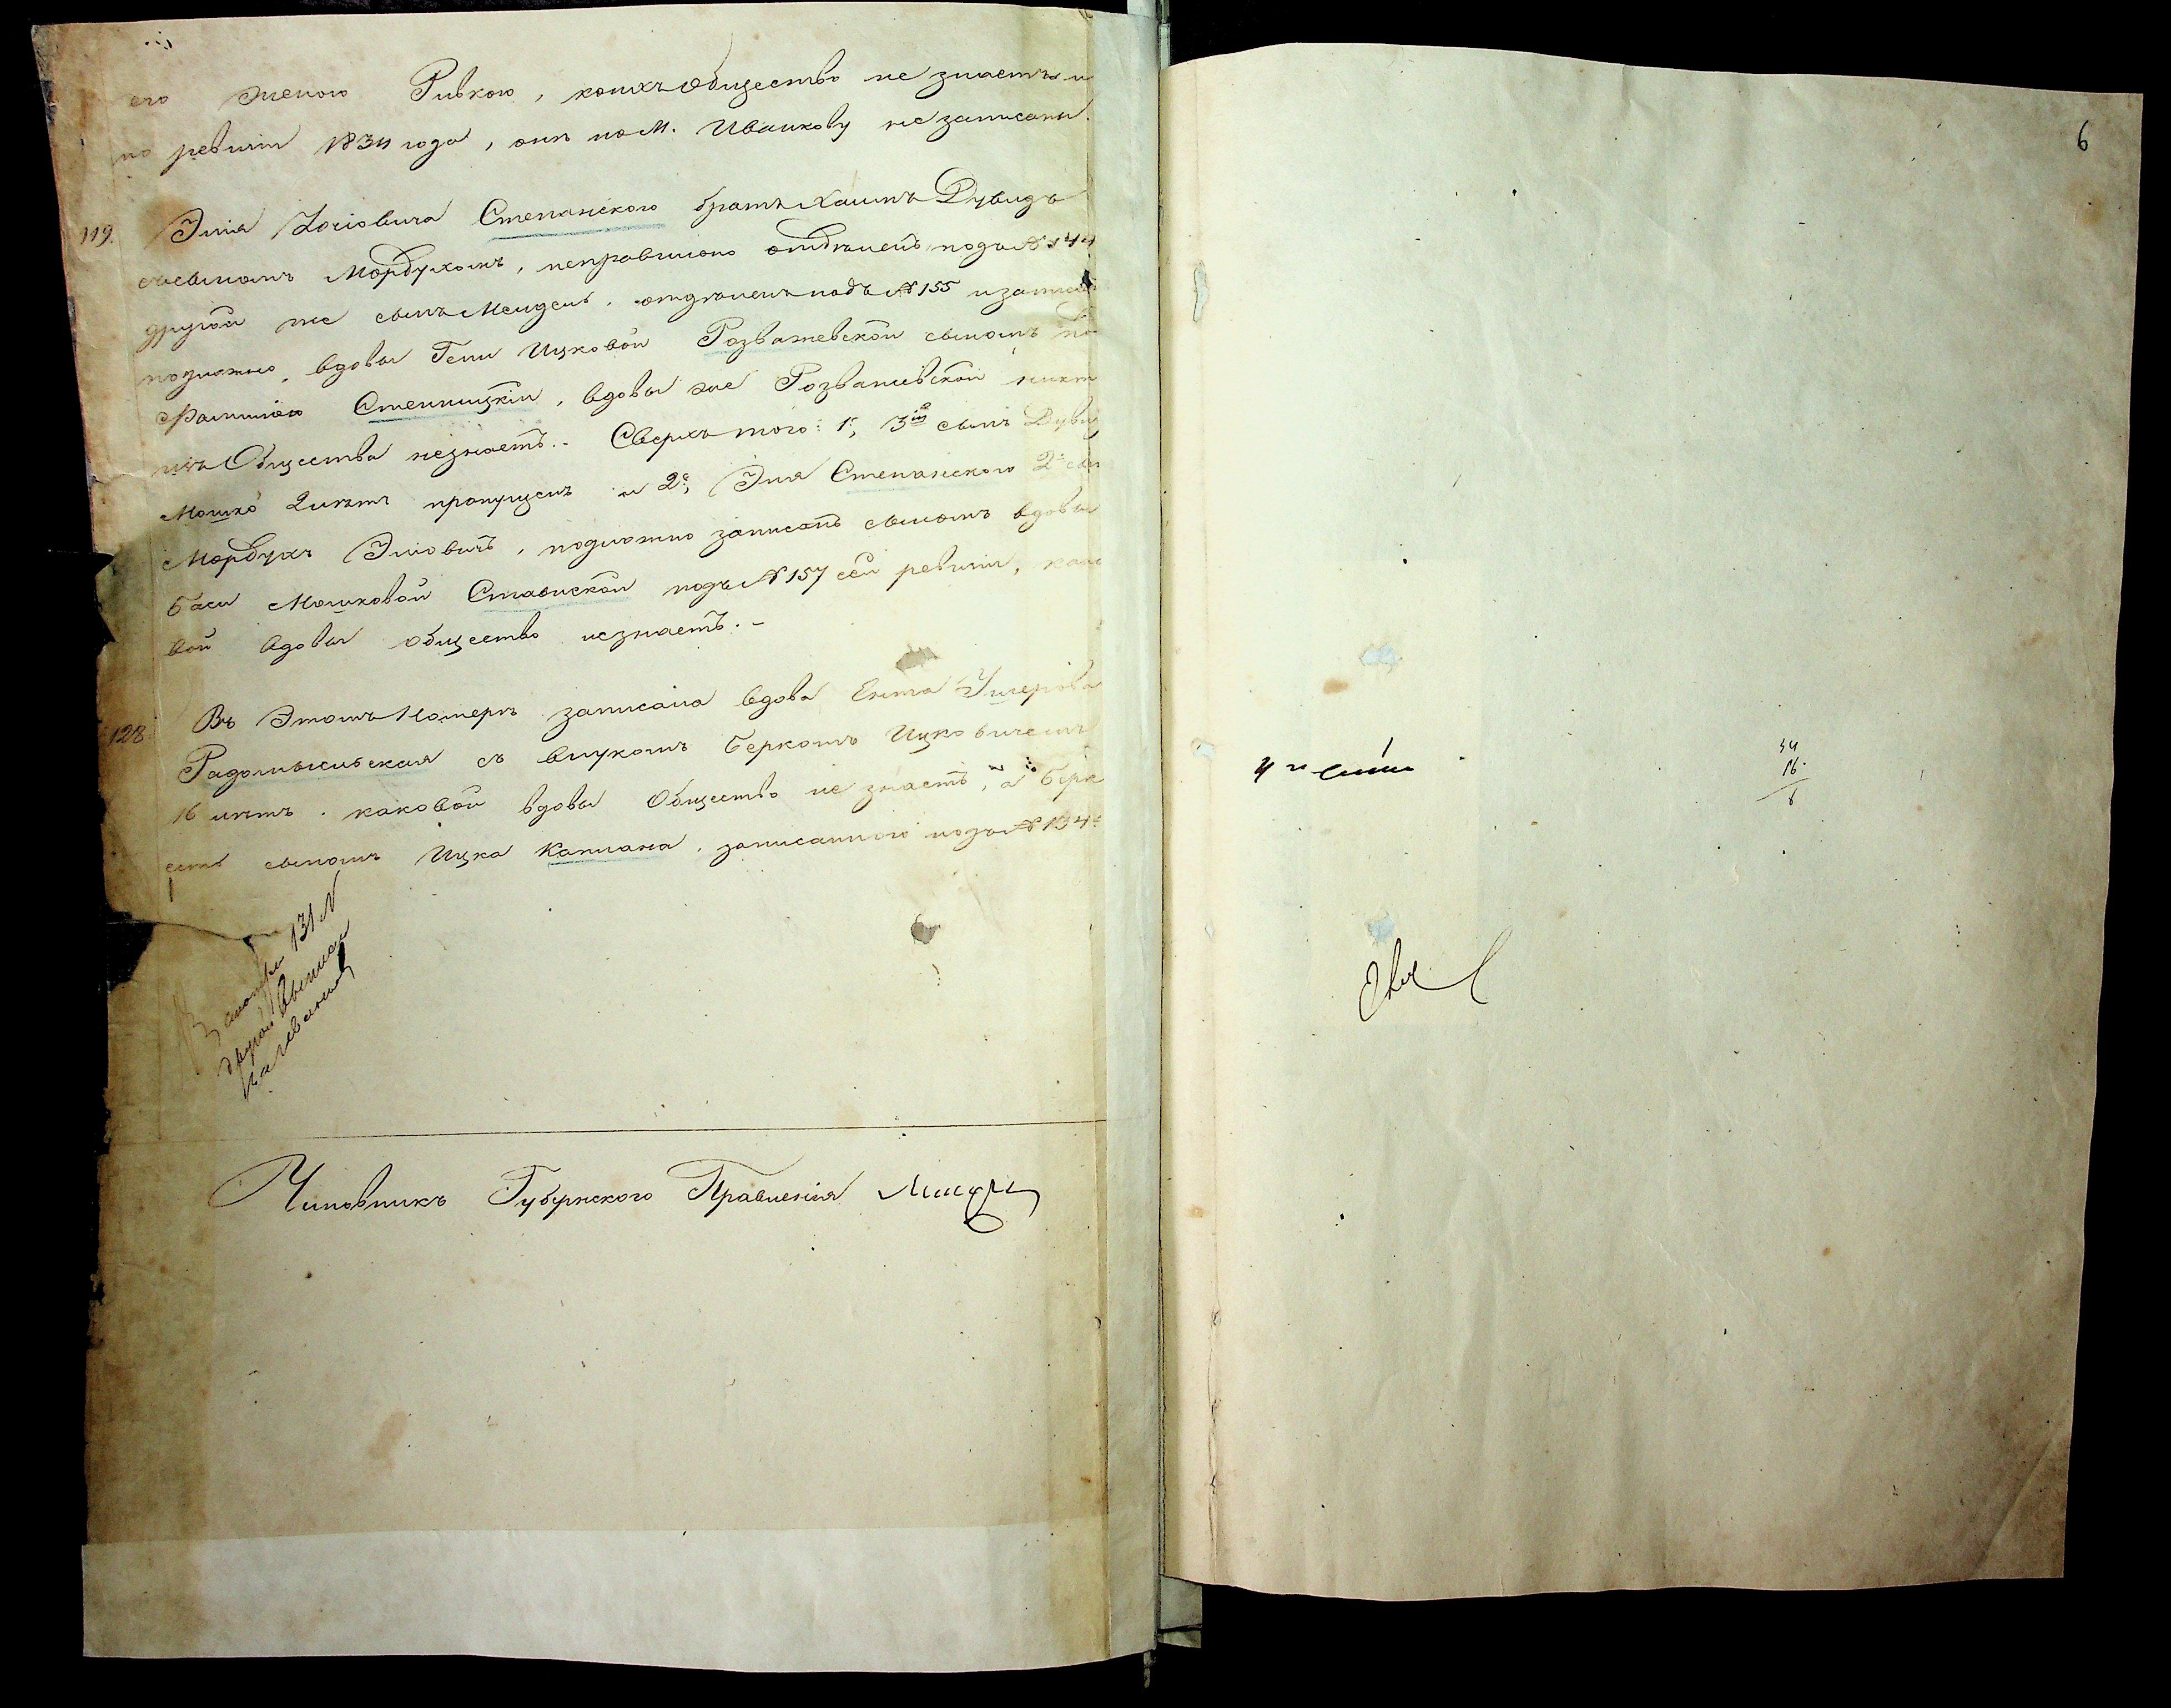 его женою Ривкою, коихъ Общество не знаетъ и
по ревизіи 1834 года, они по м. Иванкову не записаны.
119. Эліа Іосіовича Степанского братъ Хаимъ Дувидъ
съ сыномъ Мордухомъ, неправильно отдѣленъ подъ № 144
другой же сынъ Мендель отдѣленъ подъ № 155 и записанъ
подложно, вдовы Гени Ицковой Розважевской сыномъ по
фамиліею Степницкій, вдовы же Розважевской никто
изъ Общества незнаетъ. - Сверхъ того: 1е, 3й сынъ Дувид
Мошко 2 лѣтъ пропущенъ и 2е, Эліа Степанского 2й сын
Мордухъ Эліовичъ, подложно записанъ сыномъ вдовы
Баси Мошковой Ставиской подъ № 157 сей ревизіи, како
вой вдовы общество незнаетъ. -
128. Въ Этомъ Номерѣ записана вдова Ента Ушерова
Радомысльская съ внукомъ Беркомъ Ицковичемъ
16 лѣтъ. каковой вдовы Общество не знаетъ, а Берк
есть сыномъ Ицка Каплана, записанного подъ № 134
131 №
другой
Чиновникъ Губернского Правленія
6
34
16